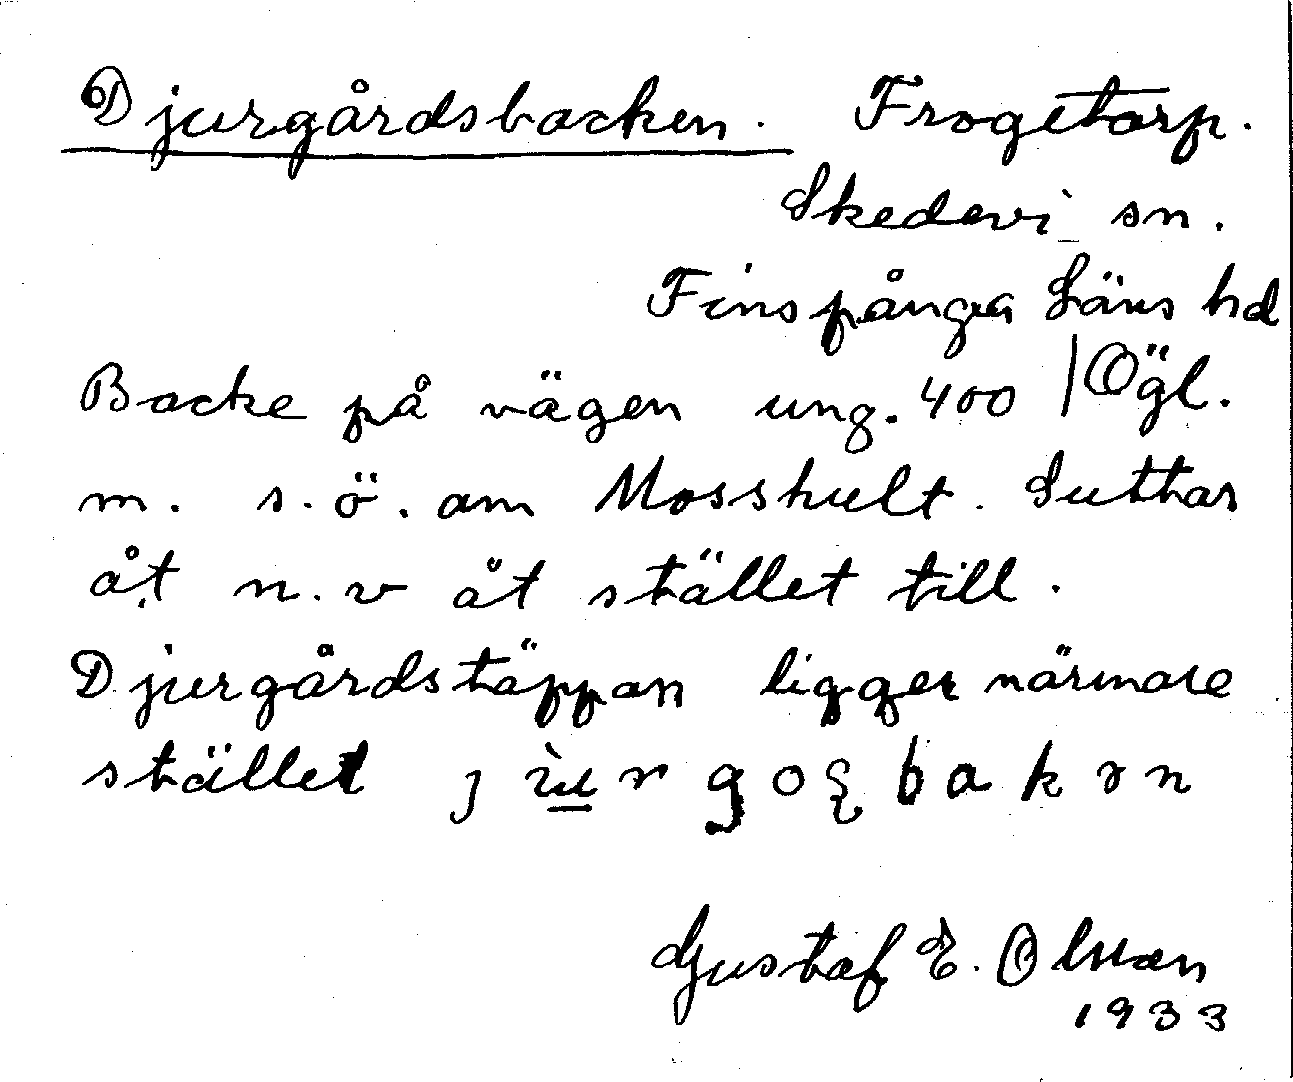 Djurgårdsbacken. Frogetorp.
Skedevi sn.
Finspånga Läns hd
Backe på vägen ung. 400 | Ögl.
m. s.ö. om Mosshult. Luttar
åt n.v åt stället till.
Djurgårdstäppan ligger närmare
stället
Gustaf E. Olsson
1933